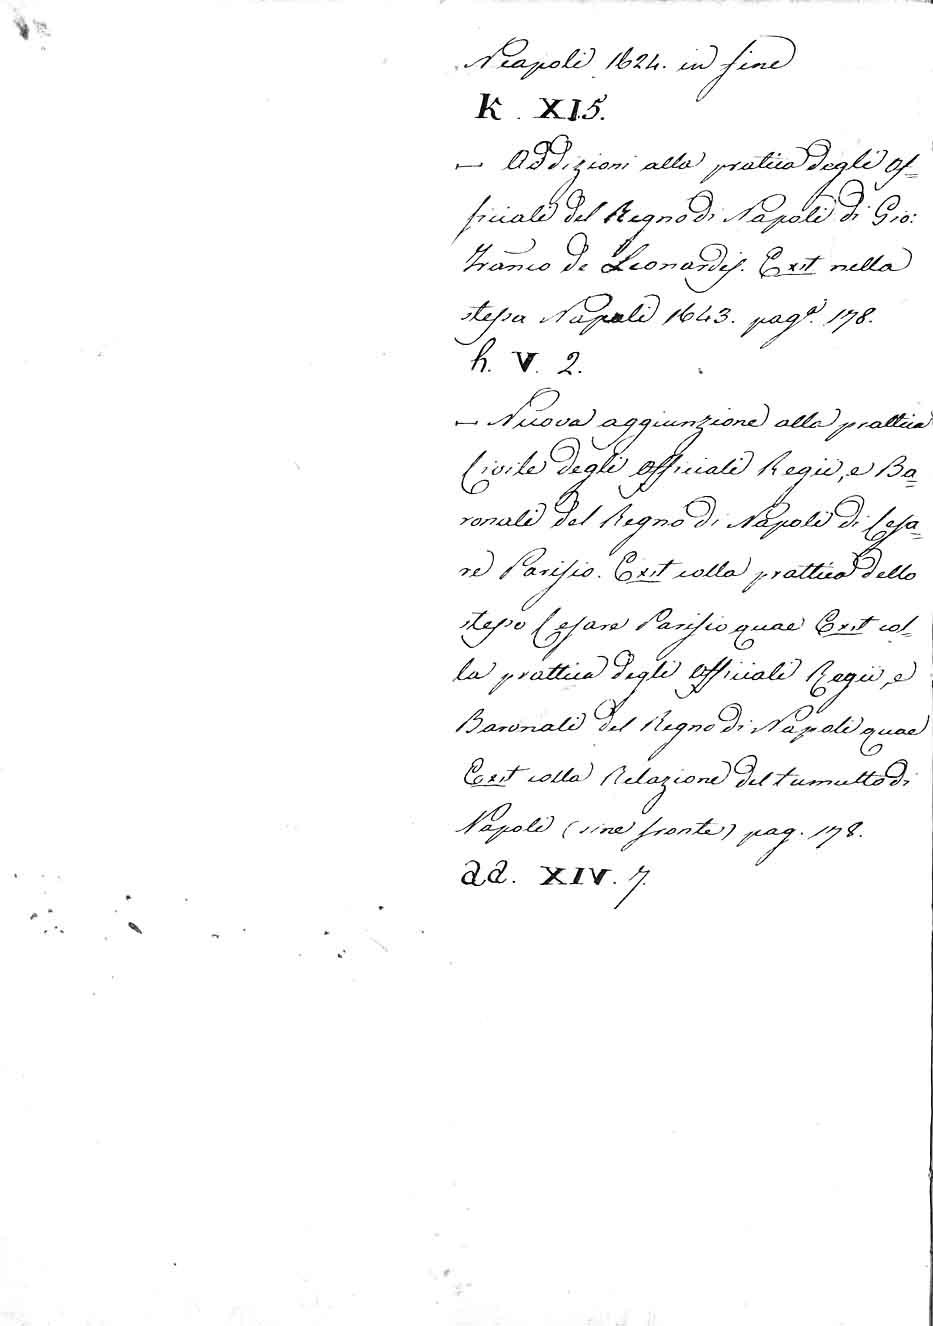 Neapoli 1624. in fine
K. XI.5.
— Addizioni alla pratica degli Of=
ficiali del Regno di Napoli di Gio:
Franco de Leonardis. Exit nella
stessa Napoli 1643. pag.ª 178.
h. V. 2.
— Nuova aggiunzione alla prattica
Civile degli Officiali Regii, e Ba=
ronali del Regno di Napoli di Cesa=
re Parisio. Exit colla prattica dello
stesso Cesare Parisio quae Exit col=
la prattica degli Officiali Regii, e
Baronali del Regno di Napoli quae
Exit colla Relazione del tumulto di
Napoli (sine fronte) pag. 178.
aa. XIV. 7.